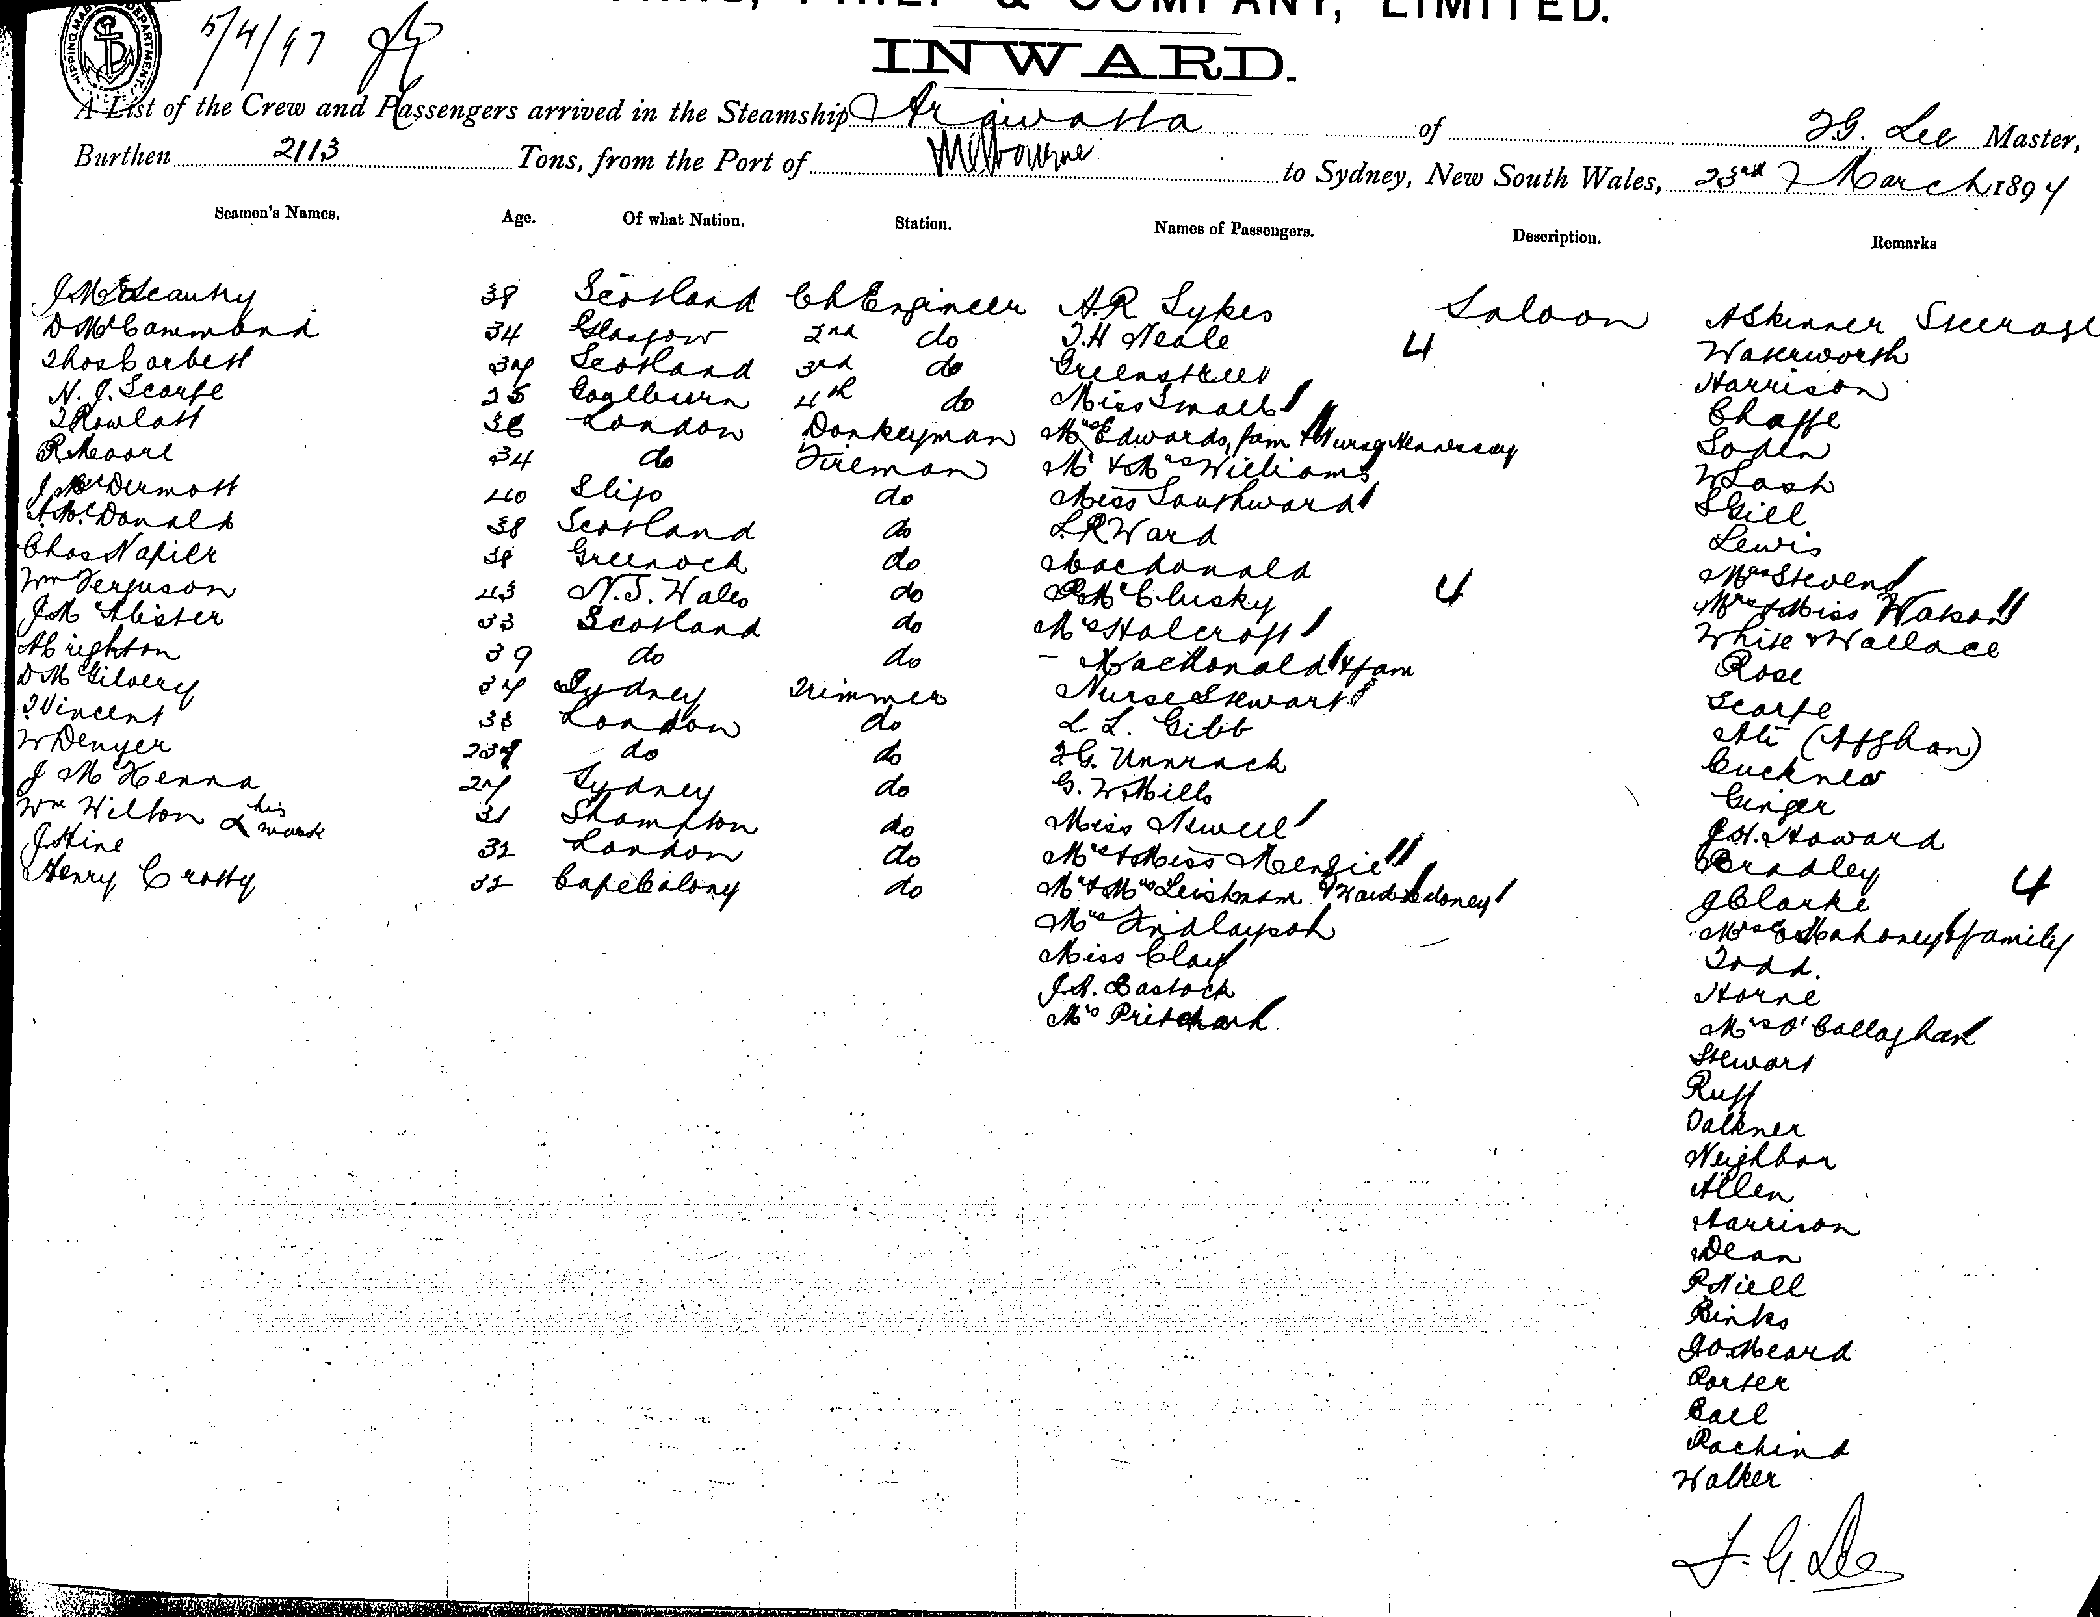 & COMPANY, LIMITED.
5/4/97
INWARD.
A List of the Crew and Passengers arrived in the Steamship Arawatta of T G. Lee Master,
Burthen 2113 Tons, from the Port of Melbourne to Sydney, New South Wales, 23rd March 1897
Seamen's Names. Age. Of what Nation. Station. Names of Passengers. Description. Remarks
38 Scotland Ch Engineer A.R Sykes Saloon A Skinner Steerage
D McCammond 34 Glasgow 2nd do T.H Neale 4 Waterworth
Thos Corbett 37 Scotland 3rd do Greenstreet Harrison
N. J. Scarfe 25 Goulburn 4th do Miss Small Chaffe
T Rowlatt 36 London Donkeyman Mrs Edwards, fam & Nurse Hennessy Soden
R Moore 34 do Fireman Mr & Mrs Williams W Lash
J McDermott 40 Sligo do Miss Southward S Gill
A McDonald 38 Scotland do L.R Ward Lewis
Chas Napier 38 Greenock do Macdonald Mrs Stevens
Wm Ferguson 43 N.S. Wales do P McClusky 4 Mrs & Miss Watson
J McAlister 33 Scotland do Mrs Holcroft White & Wallace
A Crighton 39 do do - MacDonald & fam Rose
D McGilvery 37 Sydney Trimmer Nurse Stewart Scarfe
T Vincent 38 London do L L. Gibb Ali (Afghan)
W Denyer do do F G. Unnrack Cuckner
J McKenna 27 Sydney do G. W Mills Ginger
Wm Wilton his x mark 31 Shampton do Miss Newell J.H. Howard
J Hine 32 London do Mrs & Miss Menzie Bradley
Henry Crotty 32 Cape Colony do Mr & Mrs Leishman J Clarke 4
Mrs Findlayson Mrs Mahoney & family
Miss Clay Todd.
J.A. Bastock Horne
Mrs Pritchard Mrs O'Callaghan
Stewart
Ruff
Dalkner
Neighbor
Allen
Harrison
Dean
P Niell
Binks
J O Meara
Porter
Call
Rachind
Walker
T. G. Lee